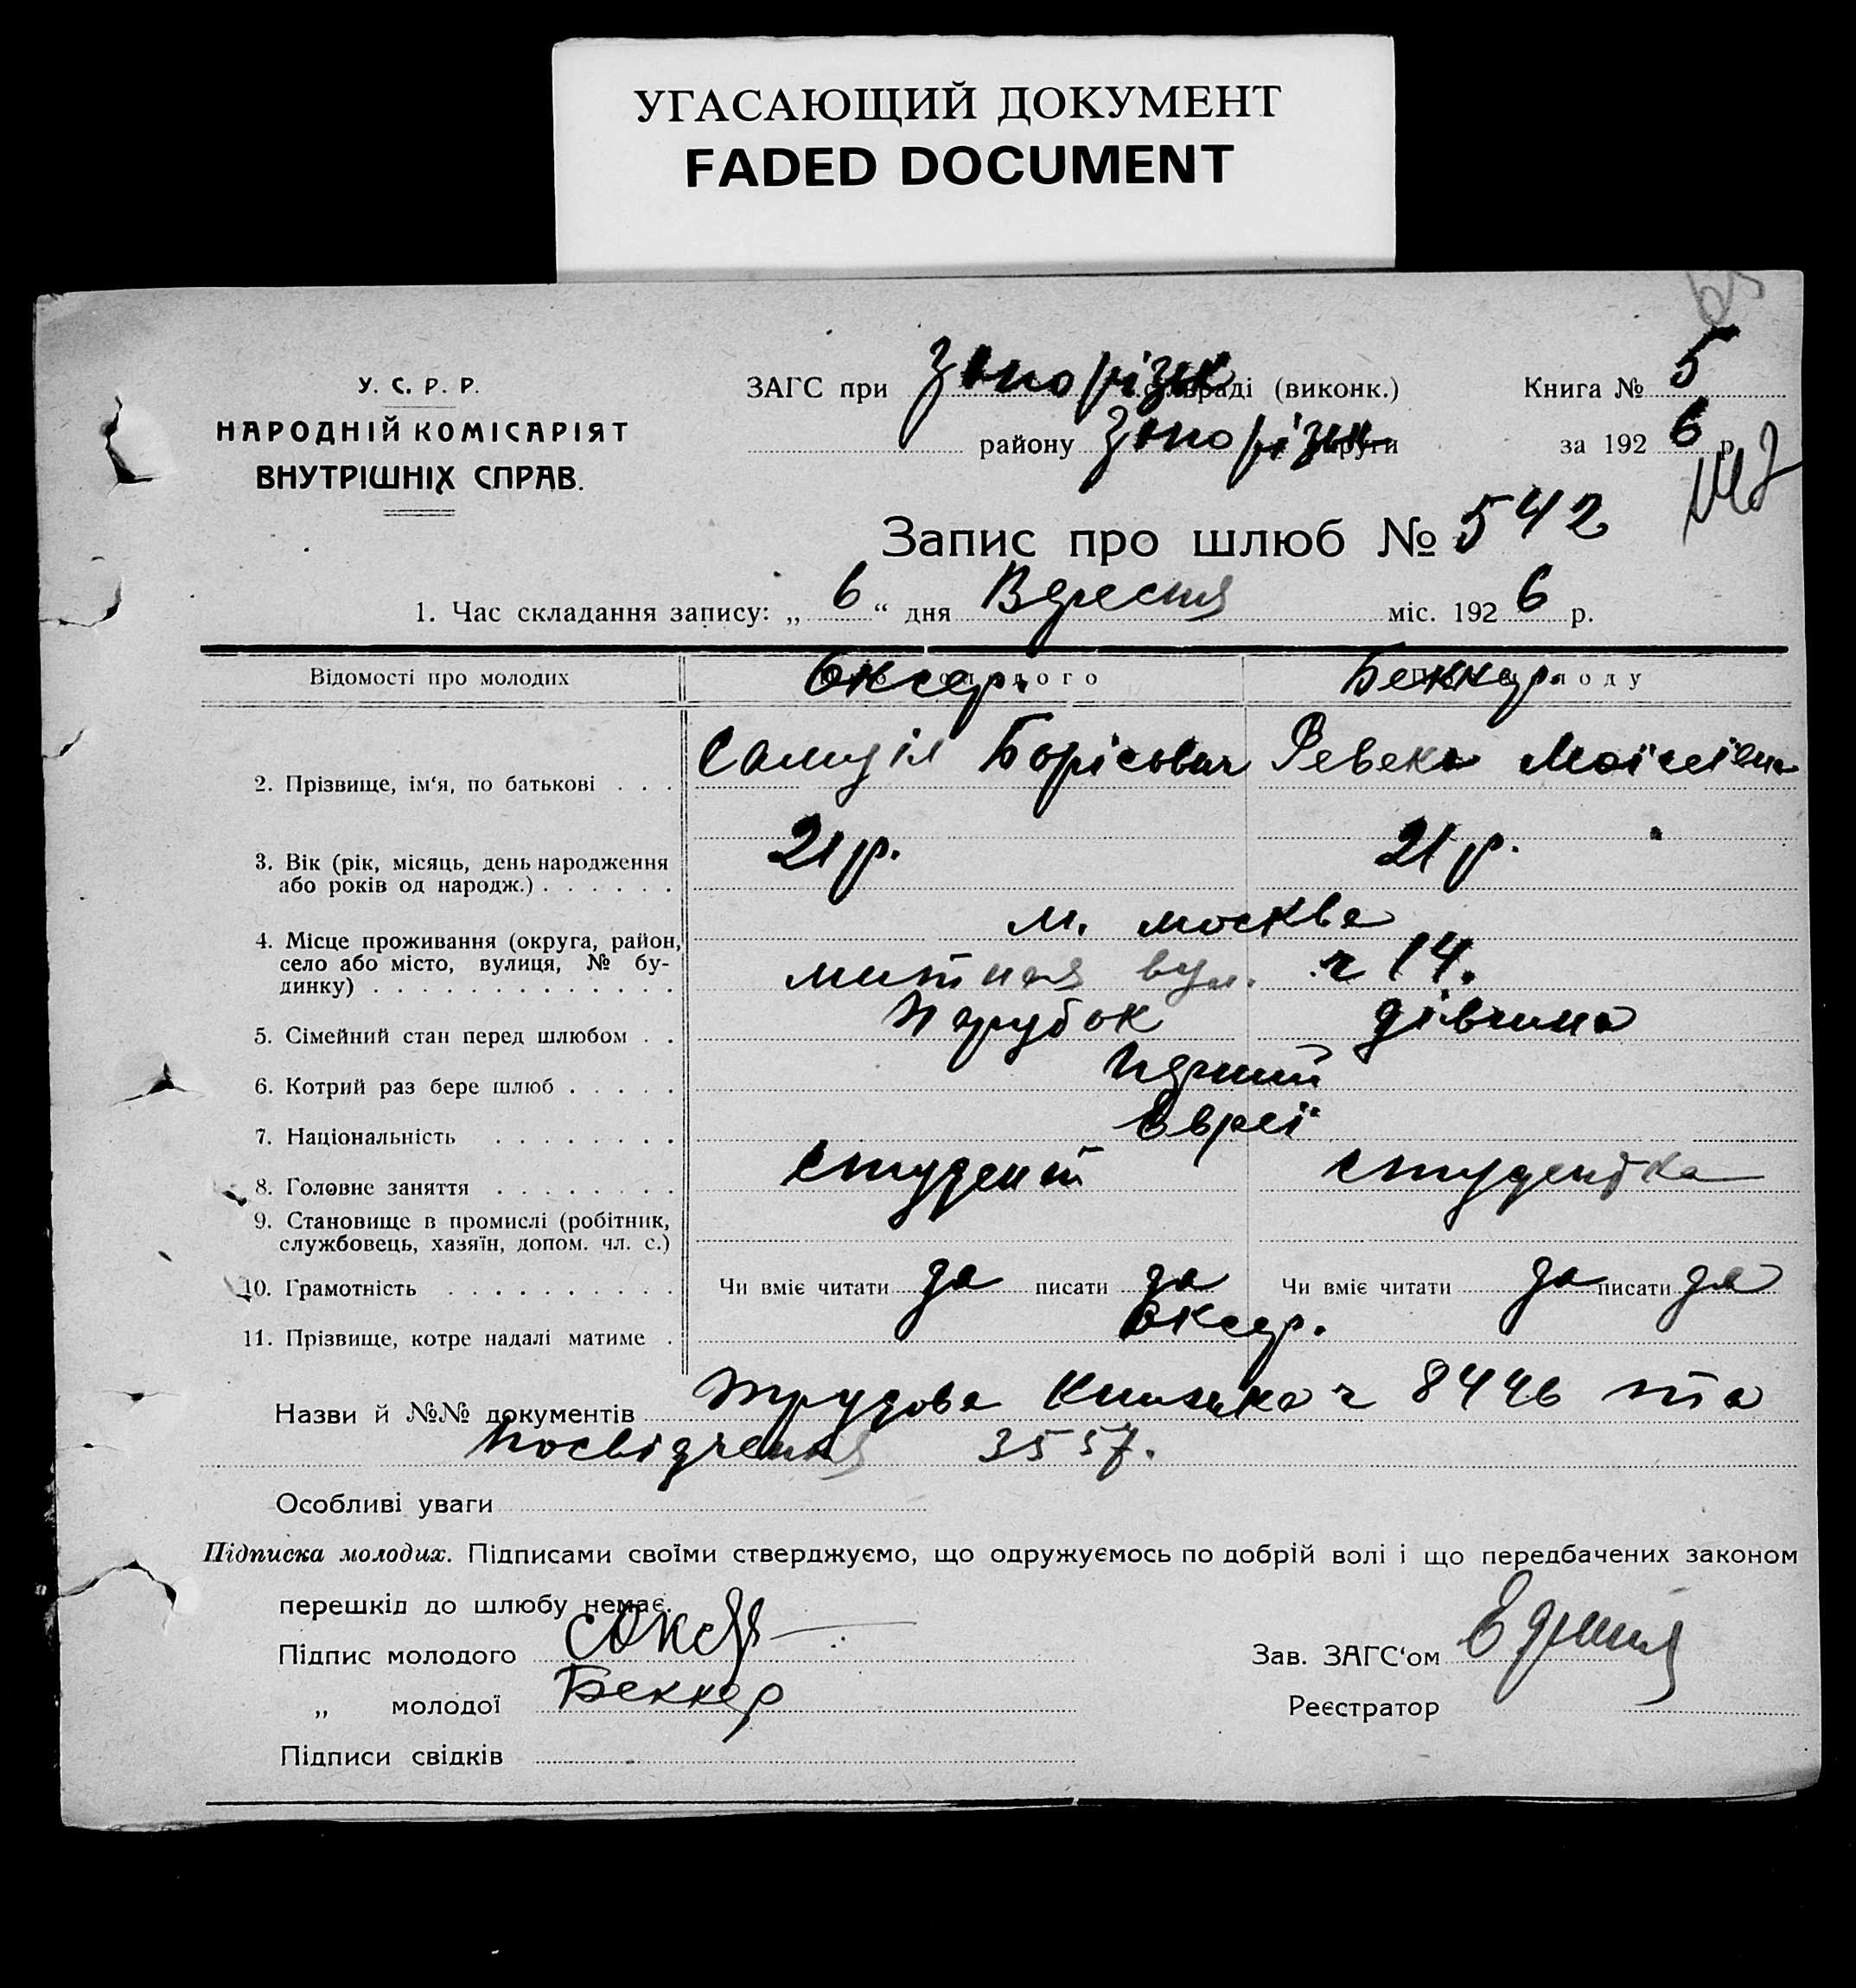 УГАСАЮЩИЙ ДОКУМЕНТ
FADED DOCUMENT
У. С. Р. Р.
НАРОДНІЙ КОМІСАРІЯТ
ВНУТРІШНІХ СПРАВ.
ЗАГС при Запорізк раді (виконк.)
Книга № 5
району Запорізьк округи
за 192 6 р.
Запис про шлюб № 542
1. Час складання запису: „ 6 “ дня Вересня міс. 192 6 р.
Відомості про молодих
Оксер.
Беккер.
2. Прізвище, ім‘я, по батькові . . .
Самуіл Борісович
Ревека Моісеівна
3. Вік (рік, місяць, день народження
або років од народж.) . . . . . .
21 р.
21 р.
4. Місце проживання (округа, район,
село або місто, вулиця, № бу-
динку) . . . . . . . . . . . . .
м. москва
митная вул. ч 14.
5. Сімейний стан перед шлюбом . .
Парубок
дівчина
6. Котрий раз бере шлюб . . . . .
перший
7. Національність . . . . . . . .
Евреі
8. Головне заняття . . . . . . . .
студент
студентка
9. Становище в промислі (робітник,
службовець, хазяїн, допом. чл. с.)
10. Грамотність . . . . . . . . . .
Чи вміє читати да писати да
Чи вміє читати да писати да
11. Прізвище, котре надалі матиме .
Оксер.
Назви й №№ документів трудова книжка ч 8446 та
посвідчення 3557.
Особливі уваги
Підписка молодих. Підписами своїми стверджуємо, що одружуємось по добрій волі і що передбачених законом
перешкід до шлюбу немає.
Підпис молодого СОксер
Зав. ЗАГС‘ом
„ молодої Беккер
Реєстратор
Підписи свідків